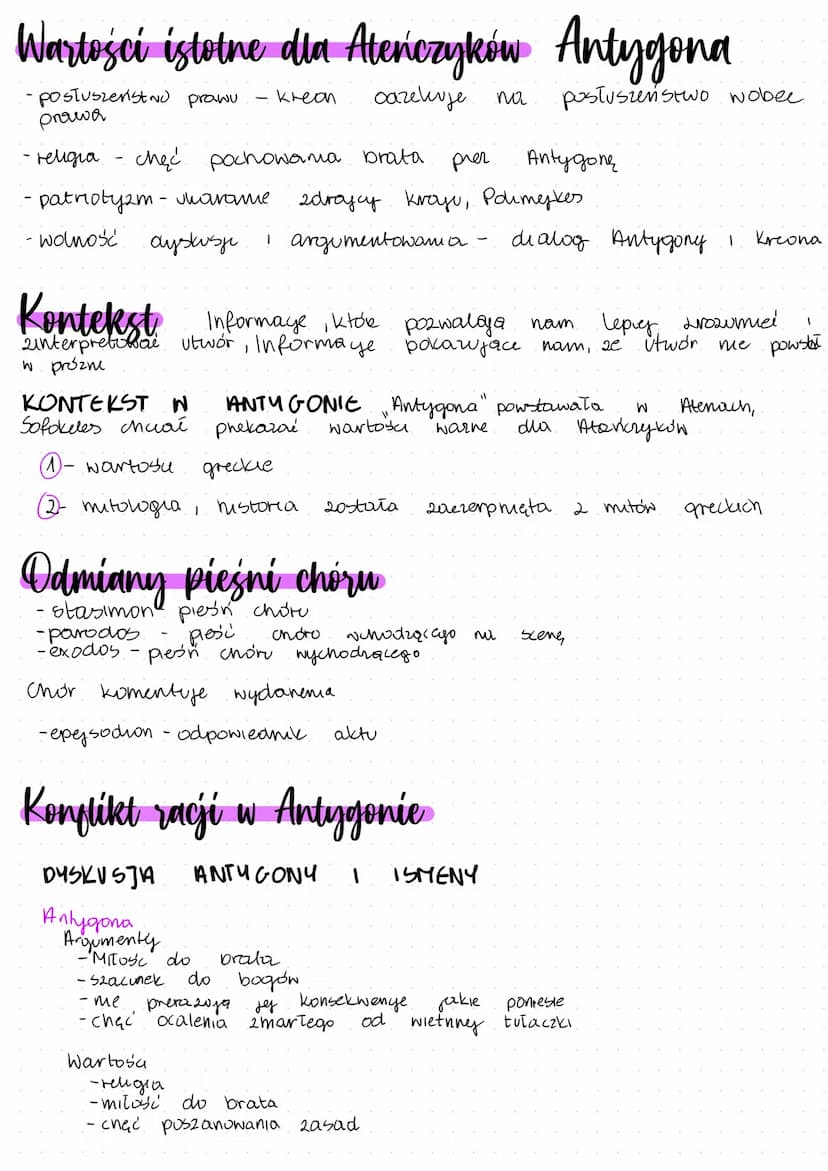 Wartości istotne dla Ateńczyków Antygona
- posłuszeństwo prawu - Kreon oczekuje na posłuszeństwo wobec
prawa
- religia - chęć pochowania brata przez Antygonę
- patriotyzm - ukaranie zdrajcy kraju, Polinejkes
- wolność dyskusji i argumentowania - dialog Antygony i Kreona
Kontekst Informacje, które pozwalają nam lepiej zrozumieć i
zinterpretować utwór, Informacje pokazujące nam, że utwór nie powstał
w próżni
KONTEKST W ANTYGONIE „Antygona" powstawała w Atenach,
Sofokles chciał przekazać wartości ważne dla Ateńczyków
1 - wartości greckie
2 - mitologia, historia została zaczerpnięta z mitów greckich
Odmiany pieśni chóru
- stasimon pieśń chóru
- parodos - pieść chóro wchodzącego na scenę
- exodos - pieśń chóru wychodzącego
Chór komentuje wydarzenia
- epejsodion - odpowiednik aktu
Konflikt racji w Antygonie
DYSKUSJA ANTYGONY I ISMENY
Antygona
Argumenty
- Miłość do brata
- szacunek do bogów
- nie przerażają jej konsekwencje jakie poniesie
- chęć ocalenia zmarłego od wiecznej tułaczki
Wartości
- religia
- miłość do brata
- chęć poszanowania zasad